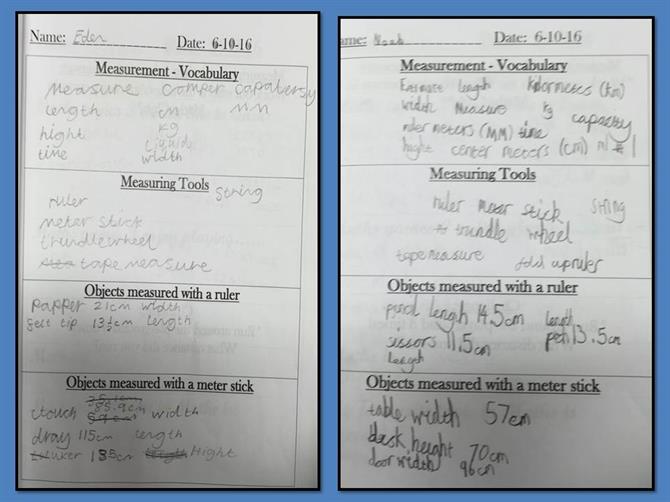 Name: Eden
Date: 6-10-16
Measurement - Vocabulary
Measure comper capabersy
length cm MM
hight kg
time liquid
width
Measuring Tools
ruler string
meter stick
trundlewheel
tape measure
Objects measured with a ruler
papper 21cm width
felt tip 13½cm length
Objects measured with a meter stick
ctouch 85.9cm width
dray 115cm length
uker 135cm Hight
ame: Noah
Date: 6-10-16
Measurement - Vocabulary
Estimate length Kilormeters (Km)
width Measure kg capacity
ruler meters (MM) time
hight center meters (cm) ml l
Measuring Tools
ruler meter stick string
trundle wheel
tapemeasure fold upruler
Objects measured with a ruler
pencil lengh 14.5cm length
sissors 11.5cm pen 13.5cm
length
Objects measured with a meter stick
table width 57cm
desk height 70cm
door width 96cm